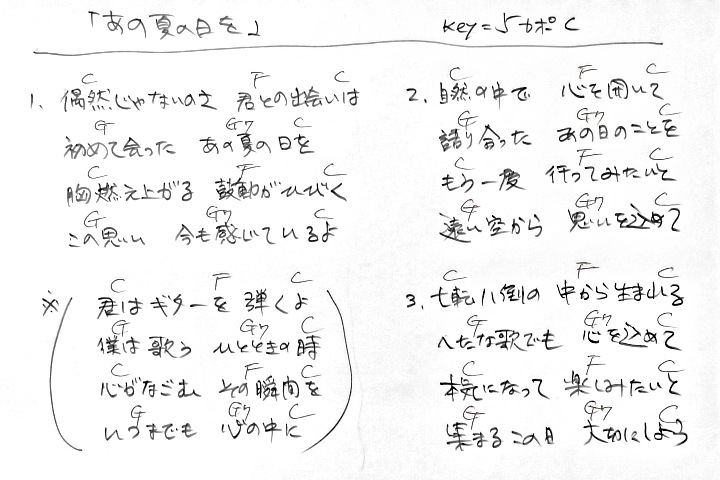 「あの夏の日を」 Key=5カポC
1. 偶然じゃないのさ 君との出会いは
C F C
初めて会った あの夏の日を
G G7 C
胸燃え上がる 鼓動がひびく
C F C
この思い 今も感じているよ
G G7 C
※ 君はギターを弾くよ
C F C
僕は歌う ひとときの時
G G7 C
心がなごむ その瞬間を
C F C
いつまでも 心の中に
G G7 C
2. 自然の中で 心を開いて
C F C
語り合った あの日のことを
G G7 C
もう一度 行ってみたいと
C F C
遠い空から 思いを込めて
G G7 C
3. 七転八倒の 中から生まれる
C F C
へたな歌でも 心を込めて
G G7 C
本気になって 楽しみたいと
C F C
集まるこの日 大切にしよう
G G7 C